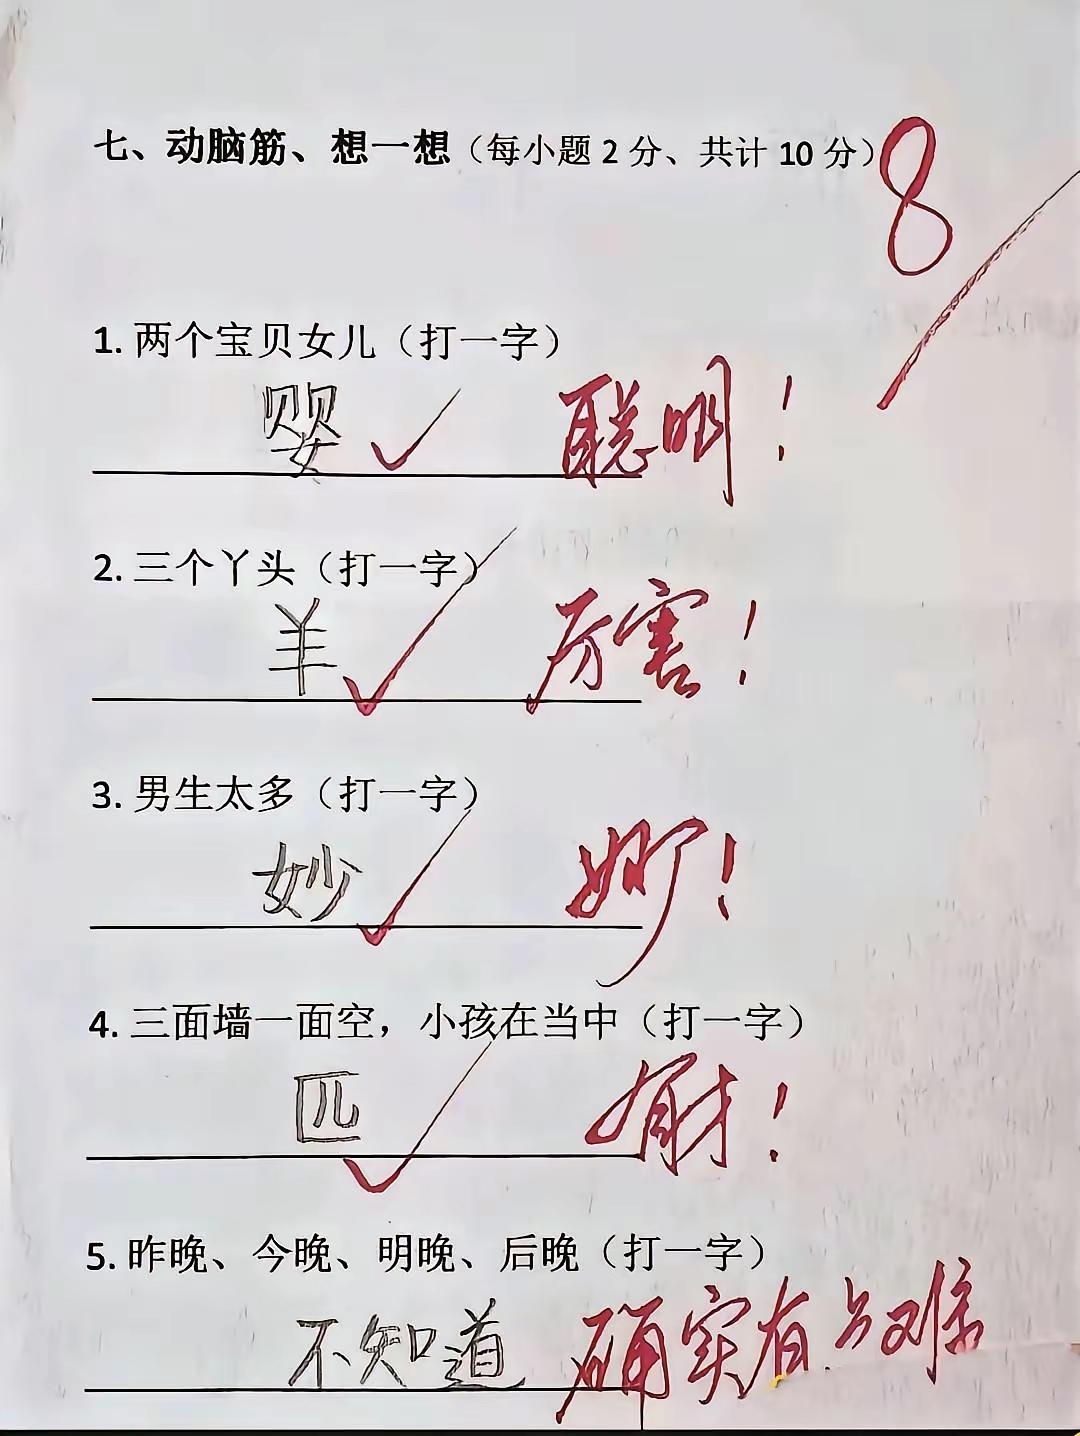 七、动脑筋、想一想（每小题 2 分、共计 10 分）
8
1. 两个宝贝女儿（打一字）
婴 聪明！
2. 三个丫头（打一字）
羊 厉害！
3. 男生太多（打一字）
妙 妙！
4. 三面墙一面空，小孩在当中（打一字）
匹 有才！
5. 昨晚、今晚、明晚、后晚（打一字）
不知道 确实有点难